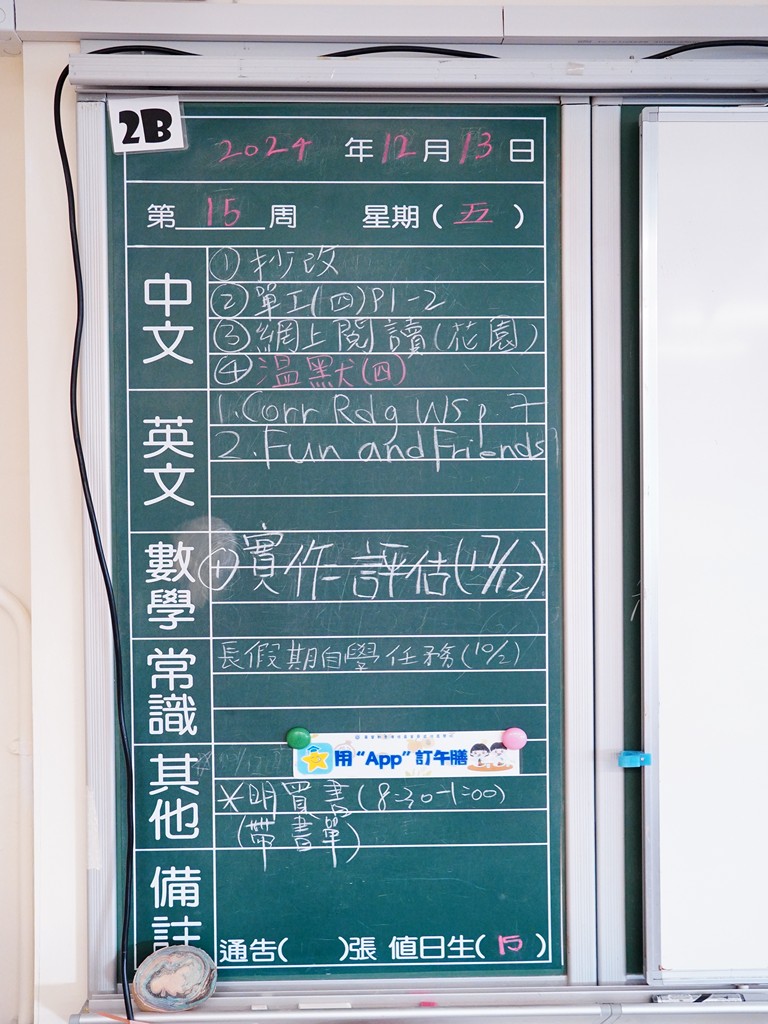 2B
2024 年 12 月 13 日
第 15 周 星期 ( 五 )
中文
① 抄改
② 單工(四)P1-2
③ 網上閱讀(花園)
④ 溫默(四)
英文
1. Corr Rdg WS p. 7
2. Fun and Friends
數學
實作評估(17/12)
常識
長假期自學任務(10/2)
其他
用 “App” 訂午膳
*明買書(8:30-1:00)
(帶書單)
備註
通告( )張 值日生( 15 )